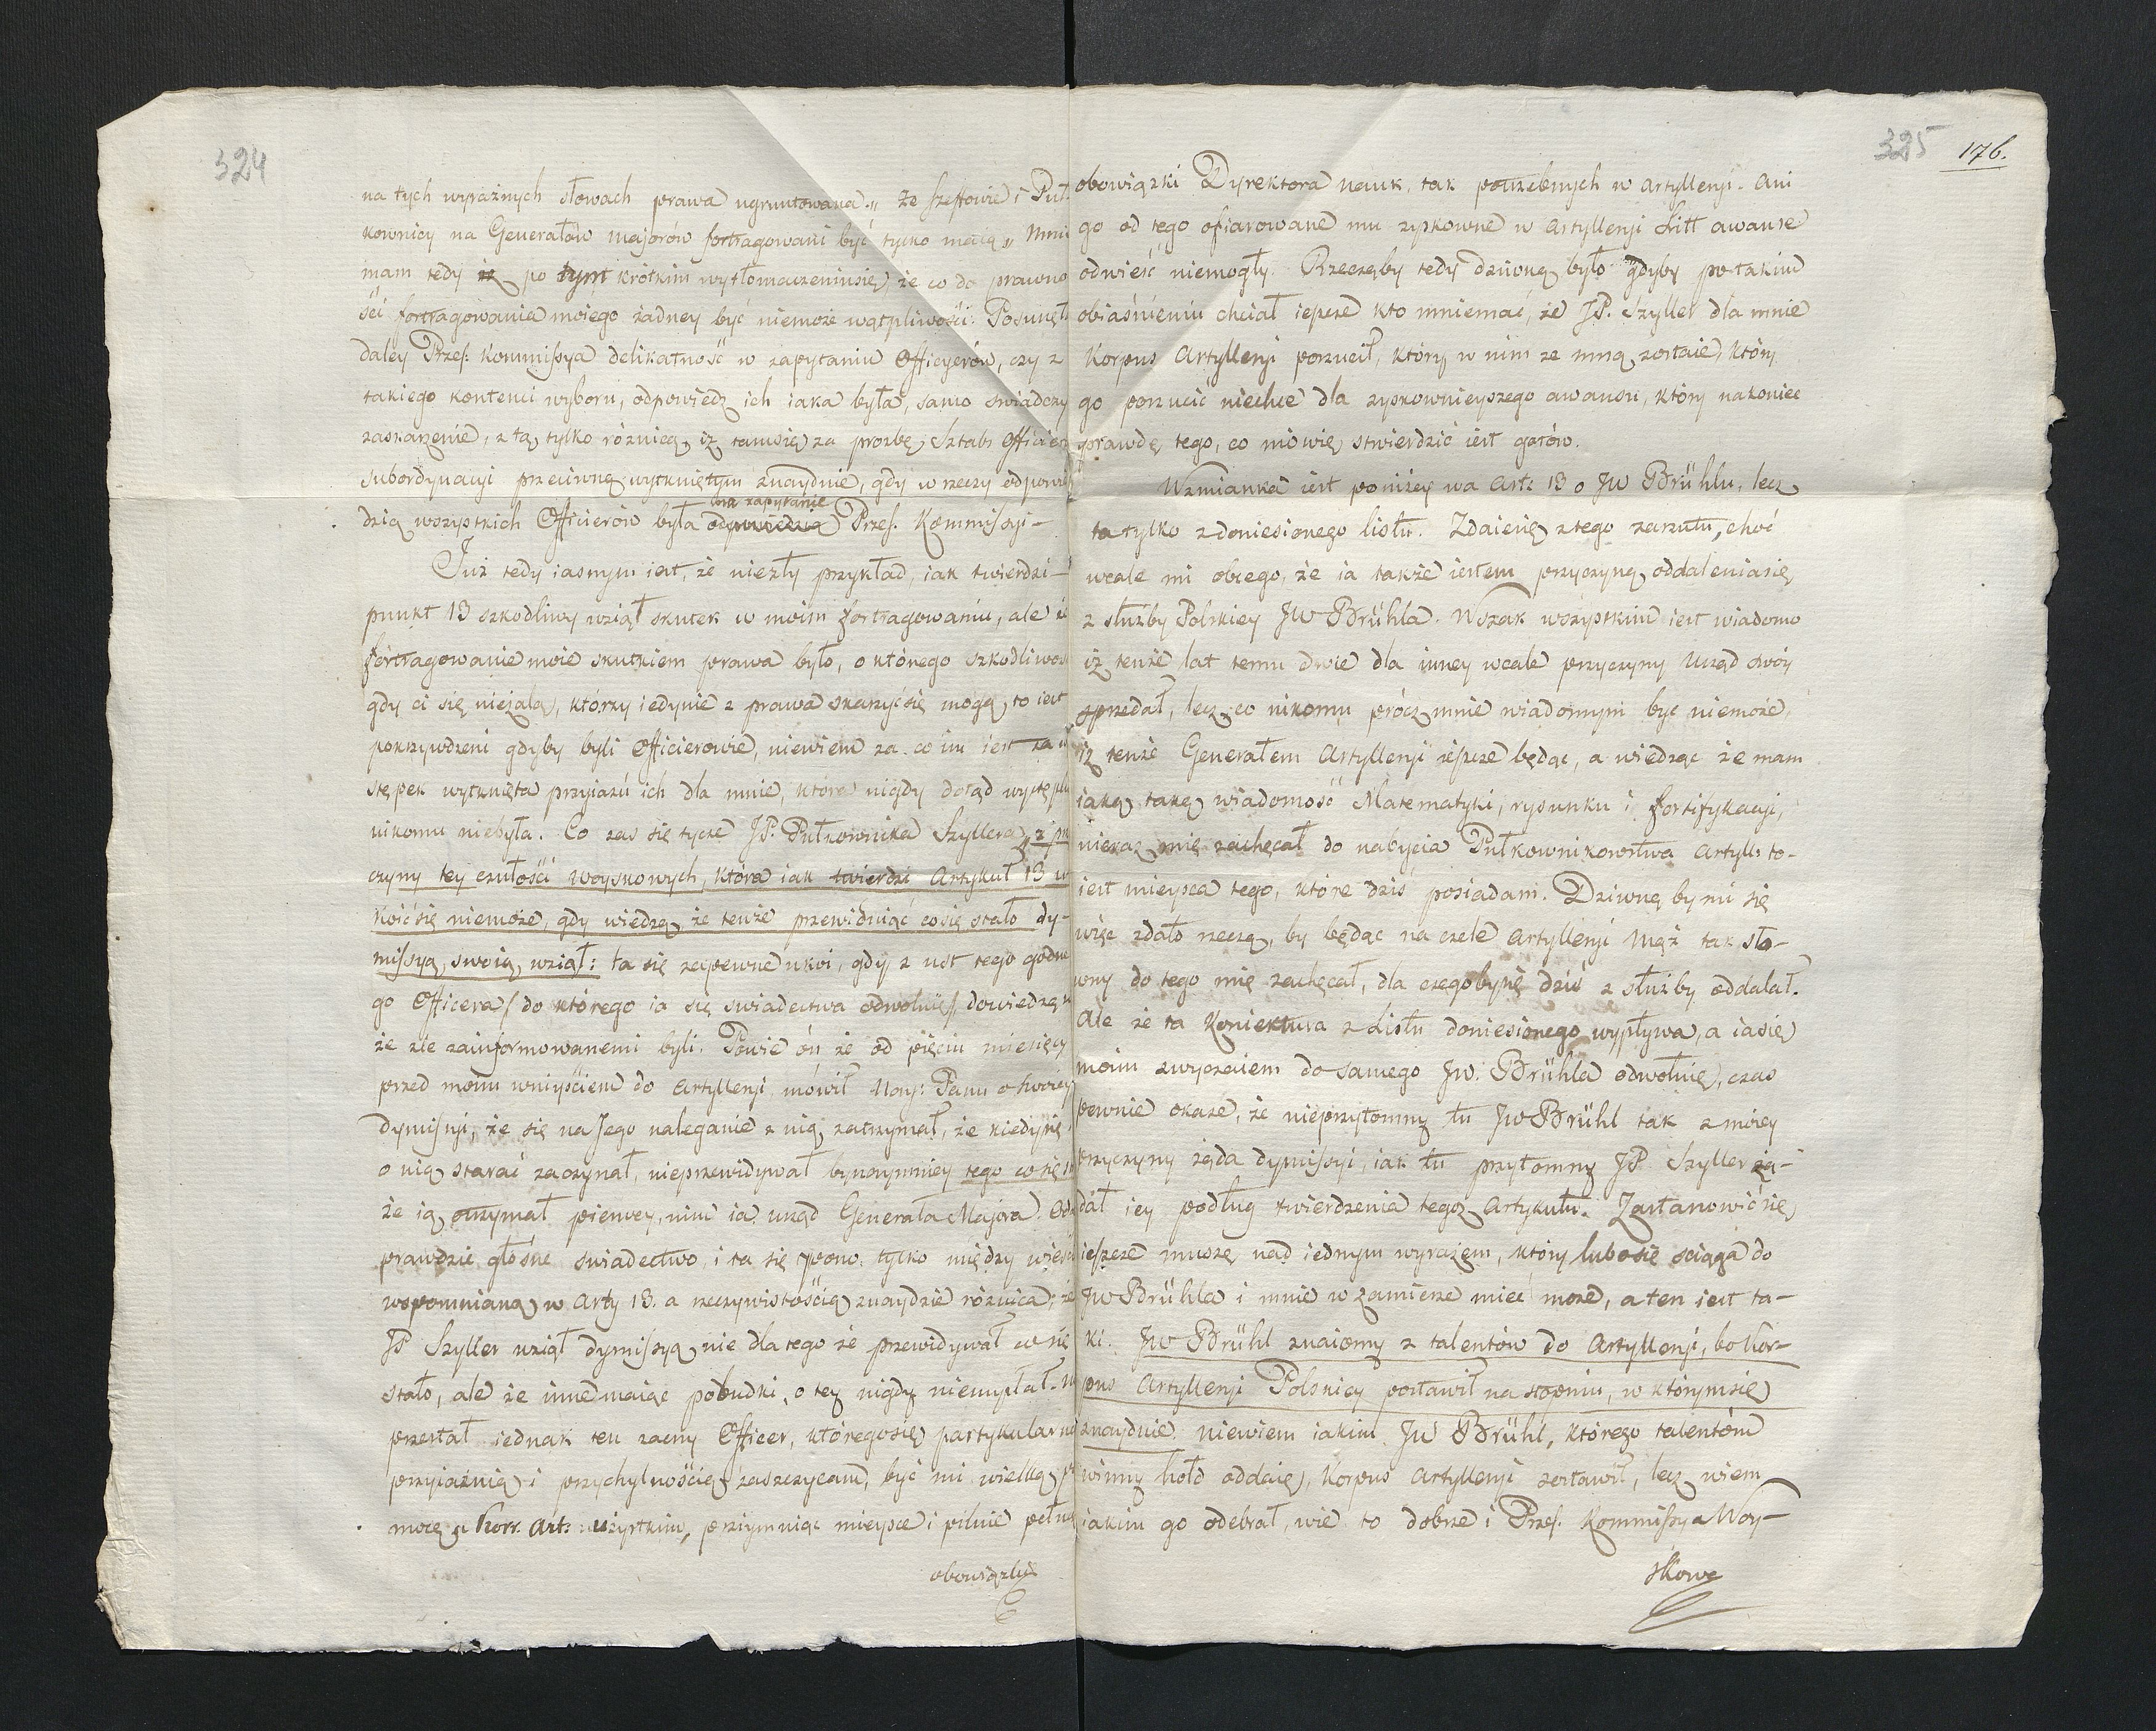 324
na tych wyraźnych słowach prawa ugruntowana „ że Szeffowie i Puł-
kownicy na Generałów majorów fortragowani być tylko maią „ Mnie
mam tedy iż po tym krótkim wytłomaczeniusię, że co do prawno
ści fortragowania moiego żadney być niemoże wątpliwości. Posunęła
daley Prześ. Kommissya delikatność w zapytaniu Officyerów, czy z
takiego kontenci wyboru, odpowiedź ich iaka była, samo swiadczy
zaskarżenie, z tą tylko różnicą, iż tamsię za prozbę Sztabs Officier
subordynacyi przeciwną wytkniętym znayduie, gdy w rzeczy odpowie
dzią wszystkich Officierów była na zapytanie Prześ. Kommissyi-
Już tedy iasnym iest, że niezły przykład, iak twierdzi-
punkt 13 szkodliwy wziął skutek w moim fortragowaniu, ale że
fortragowanie moie skutkiem prawa było, o którego szkodliwość
gdy ci się nieżalą, którzy iedynie z prawa skarzyć się mogą, to iest
pokrzywdzeni gdyby byli Officierowie, niewiem za co im iest za wy
stępek wytknięta przyiazń ich dla mnie, która nigdy dotąd występkiem
nikomu niebyła. Co zas się tycze JP. Pułkownika Szyllera, z przy
czyny tey czułości woyskowych, która iak twierdzi Artykuł 13 u
koić się niemoże, gdy wiedzą, że tenże przewiduiąć co się stało dy-
missyą swoią wziął: ta się zapewne ukoi, gdy z ust tego godne
go Officera / do którego ia się swiadectwa odwołuię / dowiedzą się
że źle zainformowanemi byli. Powie ón że od pięciu miesięcy
przed moim wniyściem do Artyllenyi mówił Nayj: Panu o swoiey
dymissyi, że się na Jego naleganie z nią zatrzymał, że kiedysię
o nią starać zaczynał, nieprzewidywał bynaymniey tego co się stało
że ią otrzymał pierwey, nim ia urząd Generała Majora. Odda
prawdzie głośne swiadectwo, i ta się pono tylko między wieścią
wspomnianą w Arty 13. a rzeczywistością znaydzie różnica; że
JP Szyller wziął dymissyą nie dla tego że przewidywał co się
stało, ale że inne maiąc pobudki, o tey nigdy niemyślał. U
przestał iednak ten zacny Officer, któregosię partykularną
przyiaźnią i przychylnością zaszczycam, być mi wielką po
mocą w Korr. Art: wszystkim, przyimuiąc mieysce i pilnie pełniąc
obowiązki
325
176.
obowiązki Dyrektora nauk, tak potrzebnych w Artyllenyi. Ani
go od tego ofiarowane mu zyskowne w Artyllenyi Litt awanse
odwieść niemogły. Rzeczą by tedy dziwną było gdyby po takim
obiaśnieniu chciał ieszcze kto mniemać, że JP. Szyller dla mnie
Korpus Artyllenyi porzucił, który w nim ze mną zostaie, który
go porzucić niechce dla zyskownieyszego awansu, który nakoniec
prawdę tego, co mówię stwierdzić iest gotów.
Wzmianka iest poniżey wa Art: 13 o JW Brühlu, lecz
ta tylko z doniesionego listu. Zdaiesię z tego zarzutu, choć
wcale mi obcego, że ia także iestem przyczyną oddaleniasię
z służby Polskiey JW Brühla. Wszak wszystkim iest wiadomo
iż tenże lat temu dwie dla inney wcale przyczyny Urząd swóy
sprzedał, lecz co nikomu prócz mnie wiadomym byc niemoże,
iż tenże Generałem Artyllenyi ieszcze będąc, a wiedząc że mam
iaką taką wiadomość Matematyki, rysunku i fortifykacyi,
nieraz mię zachęcał do nabycia Pułkownikowstwa Artyll: to-
iest mieysca tego, które dziś posiadam. Dziwną by mi się
więc zdało rzeczą, by będąc na czele Artyllenyi Mąż tak sło-
wny do tego mię zachęcał, dla czegobysię dziś z służby oddalał.
Ale że ta Koniektura z Listu doniesionego wypływa, a iasię
moim zwyczaiem do samego JW. Brühla odwołuię, czas
pewnie okaże, że nieprzytomny tu JW Brühl tak z moiey
przyczyny żąda dymissyi, iak tu przytomny JP. Szyller żą-
dał iey podług twierdzenia tegoż Artykułu. Zastanowić się
ieszcze muszę nad iednym wyrazem, który lubosię sciąga do
JW Brühla i mnie w zamierze mieć może, a ten iest ta-
ki. JW Brühl znaiomy z talentów do Artyllenyi, bo Kor-
pus Artyllenyi Polskiey postawił na stopniu, w którymsię
znayduie. niewiem iakim JW Brühl, którego talentom
winny hołd oddaię, Korpus Artyllenyi zostawił, lecz wiem
iakim go odebrał, wie to dobrze i Prześ. Kommissya Woy-
skowa